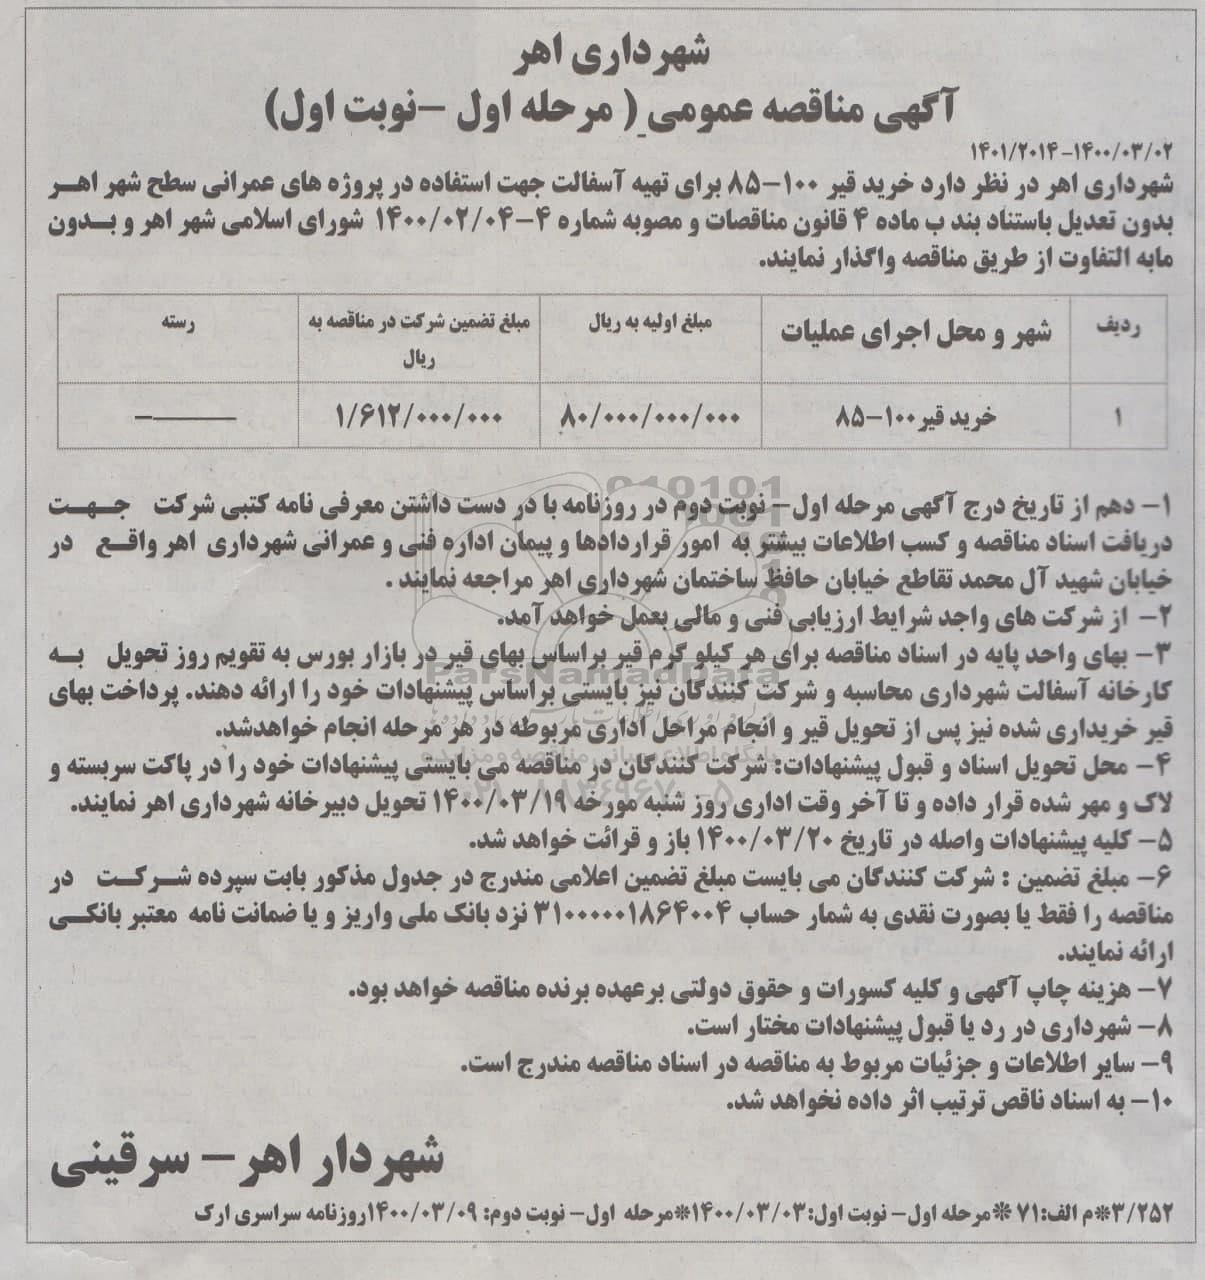 شهرداری اهر
آگهی مناقصه عمومی ( مرحله اول –نوبت اول)
۱۴۰۱/۲۰۱۴-۱۴۰۰/۰۳/۰۲
شهرداری اهر در نظر دارد خرید قیر ۱۰۰-۸۵ برای تهیه آسفالت جهت استفاده در پروژه های عمرانی سطح شهر اهـر
بدون تعدیل باستناد بند ب ماده ۴ قانون مناقصات و مصوبه شماره ۴-۱۴۰۰/۰۲/۰۴ شورای اسلامی شهر اهر و بـدون
مابه التفاوت از طریق مناقصه واگذار نمایند.
ردیف	شهر و محل اجرای عملیات	مبلغ اولیه به ریال	مبلغ تضمین شرکت در مناقصه به ریال	رسته
۱	خرید قیر۱۰۰-۸۵	۸۰/۰۰۰/۰۰۰/۰۰۰	۱/۶۱۲/۰۰۰/۰۰۰	–———
۱- دهم از تاریخ درج آگهی مرحله اول- نوبت دوم در روزنامه با در دست داشتن معرفی نامه کتبی شرکت جـهـت
دریافت اسناد مناقصه و کسب اطلاعات بیشتر به امور قراردادها و پیمان اداره فنی و عمرانی شهرداری اهر واقـع در
خیابان شهید آل محمد تقاطع خیابان حافظ ساختمان شهرداری اهر مراجعه نمایند .
۲- از شرکت های واجد شرایط ارزیابی فنی و مالی بعمل خواهد آمد.
۳- بهای واحد پایه در اسناد مناقصه برای هر کیلو گرم قیر براساس بهای قیر در بازار بورس به تقویم روز تحویل بـه
کارخانه آسفالت شهرداری محاسبه و شرکت کنندگان نیز بایستی براساس پیشنهادات خود را ارائه دهند. پرداخت بهای
قیر خریداری شده نیز پس از تحویل قیر و انجام مراحل اداری مربوطه در هر مرحله انجام خواهدشد.
۴- محل تحویل اسناد و قبول پیشنهادات: شرکت کنندگان در مناقصه می بایستی پیشنهادات خود را در پاکت سربسته و
لاک و مهر شده قرار داده و تا آخر وقت اداری روز شنبه مورخه ۱۴۰۰/۰۳/۱۹ تحویل دبیرخانه شهرداری اهر نمایند.
۵- کلیه پیشنهادات واصله در تاریخ ۱۴۰۰/۰۳/۲۰ باز و قرائت خواهد شد.
۶- مبلغ تضمین : شرکت کنندگان می بایست مبلغ تضمین اعلامی مندرج در جدول مذکور بابت سپرده شـرکـت در
مناقصه را فقط یا بصورت نقدی به شمار حساب ۳۱۰۰۰۰۰۱۸۶۴۰۰۴ نزد بانک ملی واریز و یا ضمانت نامه معتبر بانکـی
ارائه نمایند.
۷- هزینه چاپ آگهی و کلیه کسورات و حقوق دولتی برعهده برنده مناقصه خواهد بود.
۸- شهرداری در رد یا قبول پیشنهادات مختار است.
۹- سایر اطلاعات و جزئیات مربوط به مناقصه در اسناد مناقصه مندرج است.
۱۰- به اسناد ناقص ترتیب اثر داده نخواهد شد.
شهردار اهر- سرقینی
۳/۲۵۲*م الف:۷۱ *مرحله اول- نوبت اول:۱۴۰۰/۰۳/۰۳*مرحله اول- نوبت دوم: ۱۴۰۰/۰۳/۰۹روزنامه سراسری ارک
ParsNamadData
پایگاه اطلاع رسانی مناقصه و مزایده